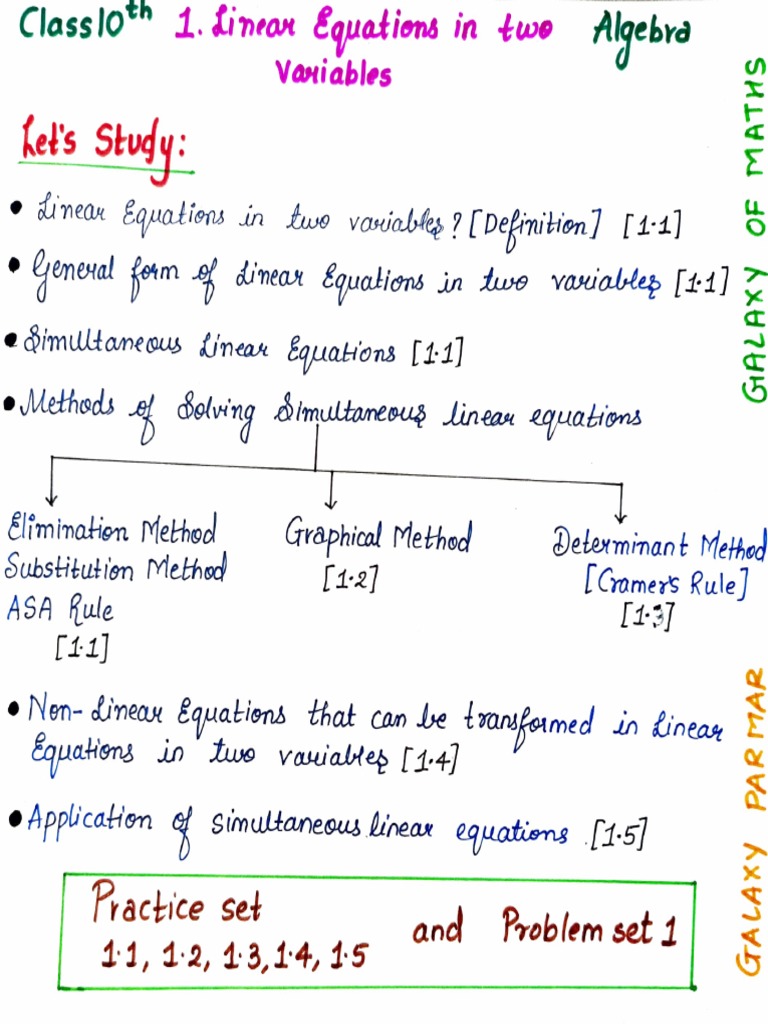 Class 10th 1. Linear Equations in two Algebra
Variables
Let's Study:
• Linear Equations in two variables? [Definition] [1.1]
• General form of Linear Equations in two variables [1.1]
• Simultaneous Linear Equations [1.1]
• Methods of Solving Simultaneous linear equations
Elimination Method
Substitution Method
ASA Rule
[1.1]
Graphical Method
[1.2]
Determinant Method
[Cramer's Rule]
[1.3]
• Non-Linear Equations that can be transformed in Linear
Equations in two variables [1.4]
• Application of simultaneous linear equations [1.5]
Practice set
1.1, 1.2, 1.3, 1.4, 1.5
and Problem set 1
GALAXY OF MATHS
GALAXY PARMAR